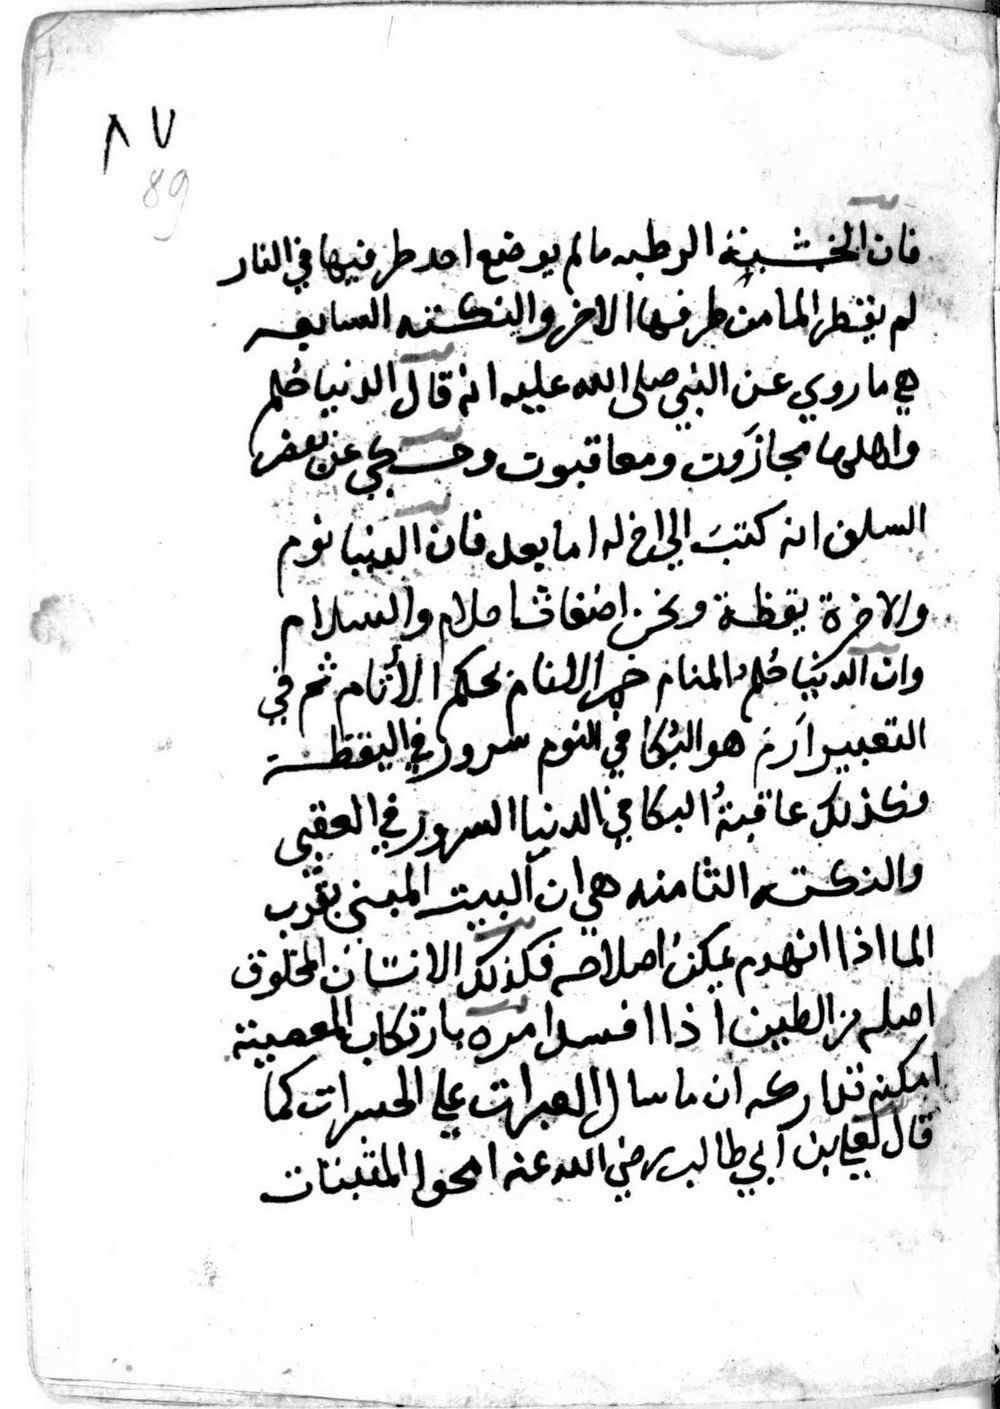 ٨٧
89
فان الخشبة الرطبه ما لم يوضع احد طرفيها في النار
لم يقطر الما من طرفها الاخر والنكته السابعه
هي ما روي عن النبي صلى الله عليه انه قال الدنيا حُلم
واهلها مجازَون ومعاقبون وحكي عن بعض
السلف انه كتبَ الي اخ له اما بعد فان الدنيا نوم
والاخرة يقظة ونحن اضغاث احلام والسلام
وان الدنيا حُلم المنام بحكم الأنام ثم في
التعبير هو البُكا في النوم سرور في اليقظة
فكذلك عاقبةُ البكا في الدنيا السرور في العقبى
والنكته الثامنه هي ان البيت المبني بقرب
الما اذا انهدم يمكنُ اصلاحه فكذلك الانسان المخلوق
اصله من الطين اذا افسد امره بارتكاب المعصية
امكنه تداركه ان ما سال العبرات علي الحسرات كما
قال لعلي بن ابي طالب رضي الله عنه امحوا المثبتات